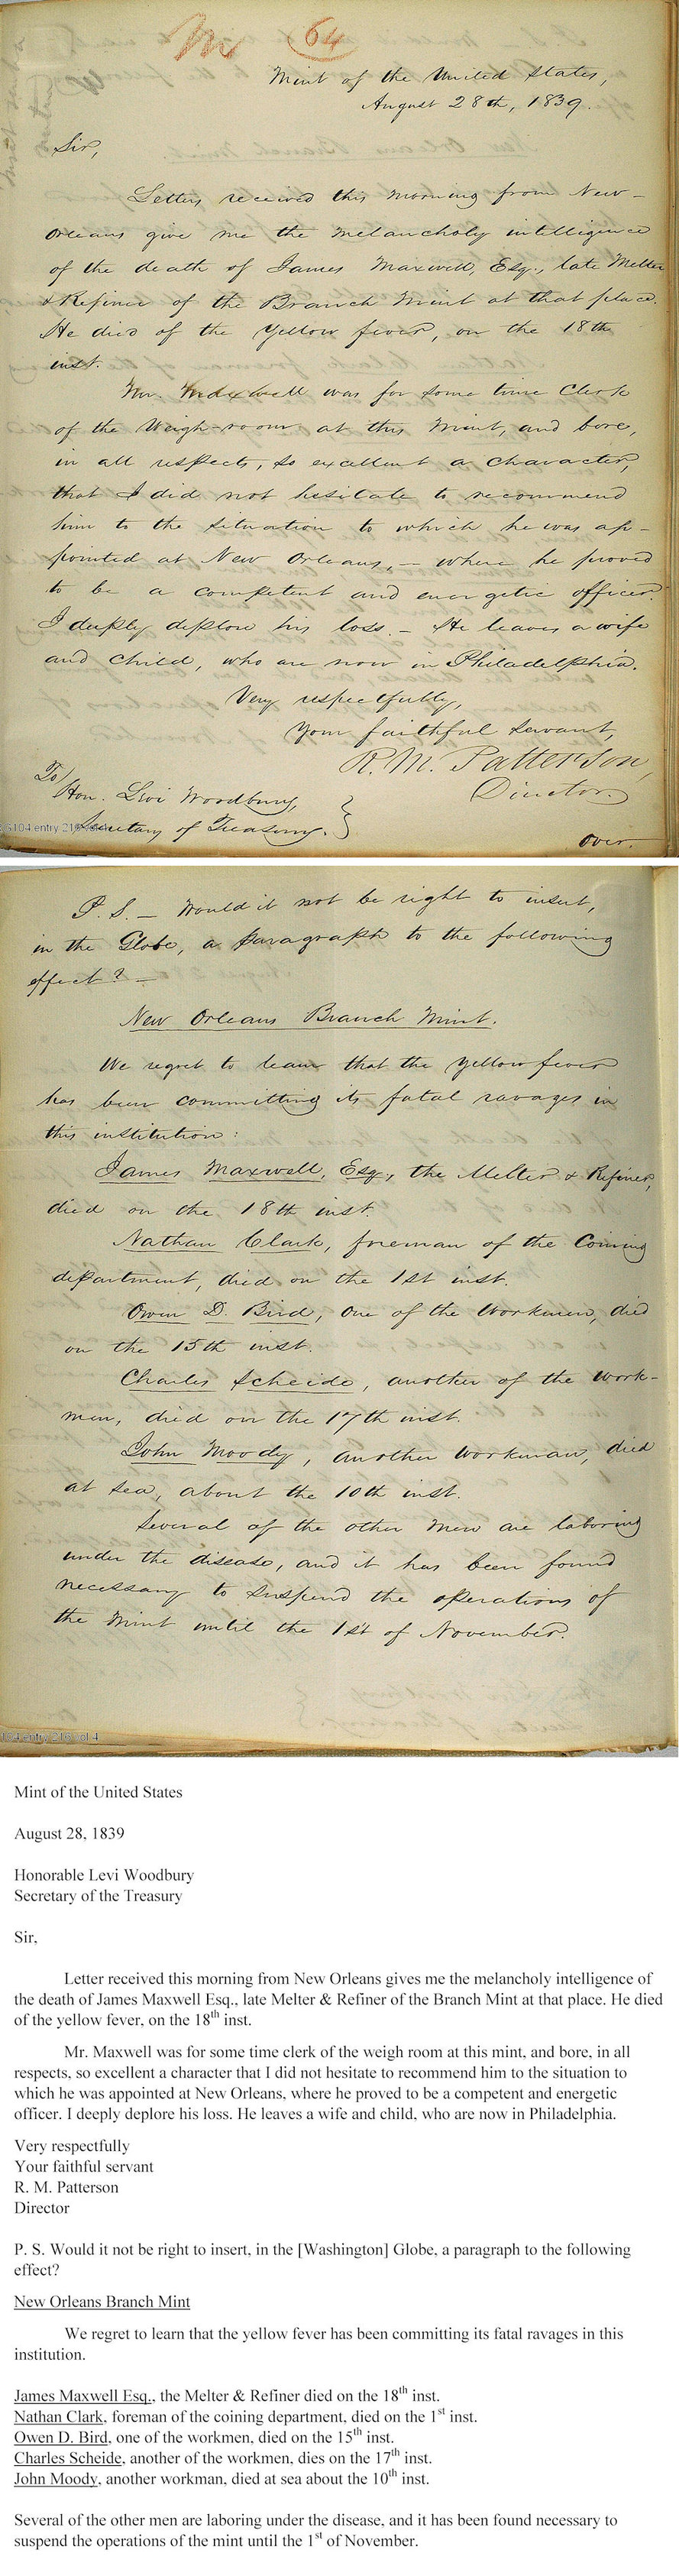 M 64
Mint of the United States,
August 28th, 1839.
Sir,
Letters received this morning from New-
Orleans give me the melancholy intelligence
of the death of James Maxwell, Esq., late Melter
& Refiner of the Branch Mint at that place.
He died of the yellow fever, on the 18th
inst.
Mr. Maxwell was for some time Clerk
of the Weigh-room at this Mint, and bore,
in all respects, so excellent a character,
that I did not hesitate to recommend
him to the situation to which he was ap-
pointed at New Orleans, – where he proved
to be a competent and energetic officer.
I deeply deplore his loss. – He leaves a wife
and child, who are now in Philadelphia.
Very respectfully,
Your faithful servant,
R. M. Patterson,
Director.
To
Hon. Levi Woodbury,
Secretary of Treasury. }
104 entry 216
over.
P. S. – Would it not be right to insert,
in the Globe, a paragraph to the following
effect? –
New Orleans Branch Mint.
We regret to learn that the yellow fever
has been committing its fatal ravages in
this institution:
James Maxwell, Esq., the Melter & Refiner,
died on the 18th inst.
Nathan Clark, foreman of the Coining
department, died on the 1st inst.
Owen D. Bird, one of the workmen, died
on the 15th inst.
Charles Scheide, another of the work-
men, died on the 17th inst.
John Moody, another workman, died
at sea, about the 10th inst.
Several of the other men are laboring
under the disease, and it has been found
necessary to suspend the operations of
the Mint until the 1st of November.
104 entry 216 vol 4
Mint of the United States
August 28, 1839
Honorable Levi Woodbury
Secretary of the Treasury
Sir,
Letter received this morning from New Orleans gives me the melancholy intelligence of
the death of James Maxwell Esq., late Melter & Refiner of the Branch Mint at that place. He died
of the yellow fever, on the 18th inst.
Mr. Maxwell was for some time clerk of the weigh room at this mint, and bore, in all
respects, so excellent a character that I did not hesitate to recommend him to the situation to
which he was appointed at New Orleans, where he proved to be a competent and energetic
officer. I deeply deplore his loss. He leaves a wife and child, who are now in Philadelphia.
Very respectfully
Your faithful servant
R. M. Patterson
Director
P. S. Would it not be right to insert, in the [Washington] Globe, a paragraph to the following
effect?
New Orleans Branch Mint
We regret to learn that the yellow fever has been committing its fatal ravages in this
institution.
James Maxwell Esq., the Melter & Refiner died on the 18th inst.
Nathan Clark, foreman of the coining department, died on the 1st inst.
Owen D. Bird, one of the workmen, died on the 15th inst.
Charles Scheide, another of the workmen, dies on the 17th inst.
John Moody, another workman, died at sea about the 10th inst.
Several of the other men are laboring under the disease, and it has been found necessary to
suspend the operations of the mint until the 1st of November.